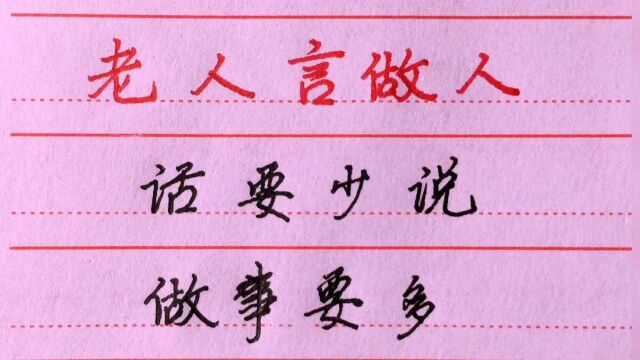 老人言做人
话要少说
做事要多